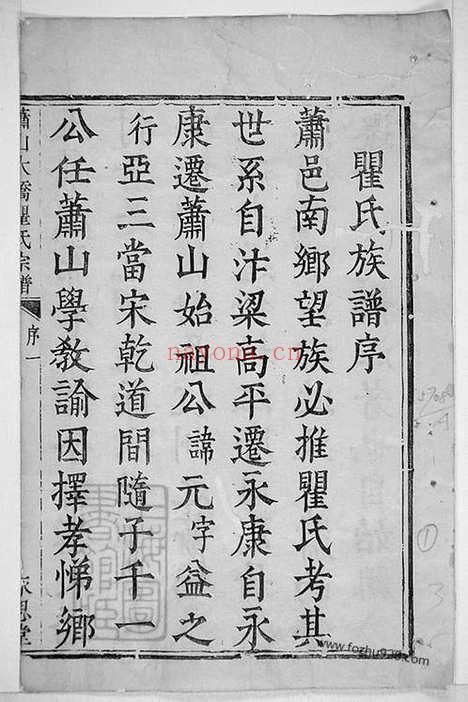 瞿氏族譜序
蕭邑南鄉望族必推瞿氏考其
世系自汴梁高平遷永康自永
康遷蕭山始祖公諱元字益之
行亞三當宋乾道間隨子千一
公任蕭山學教諭因擇孝悌鄉
蕭山大橋瞿氏宗譜
序一
永思堂
nayona.cn
www.fozhu920.com